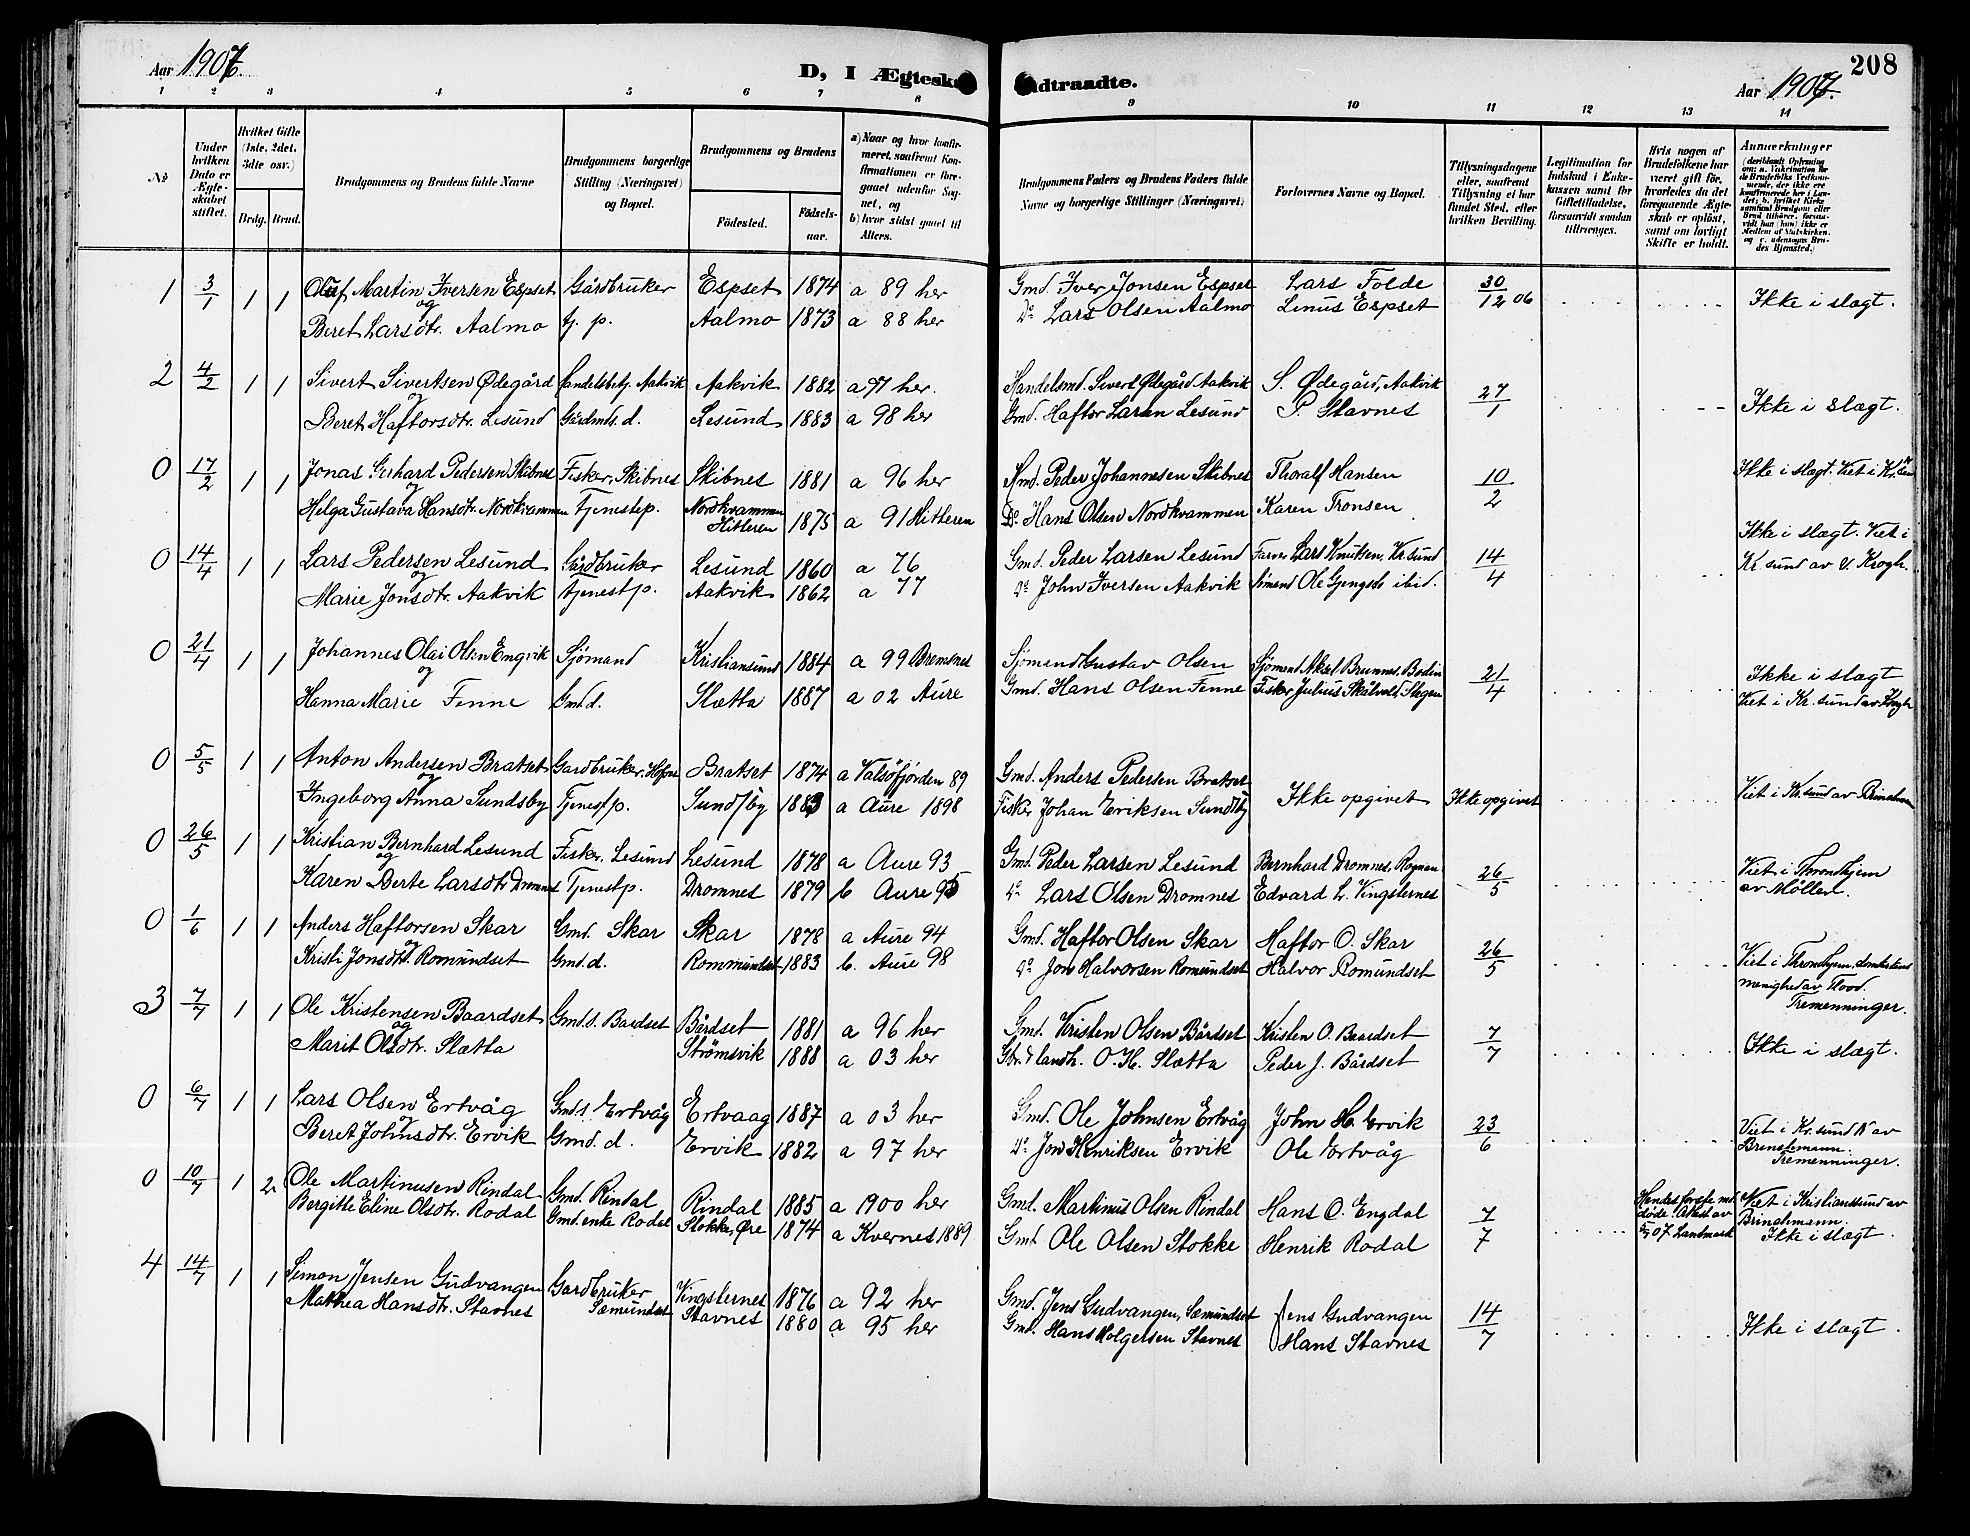 208
Aar 1907.
D, I Ægtesk
ndtraadte.
Aar 1907.
1 2 3 4 5 6 7 8 9 10 11 12 13 14
No
Under hvilken Dato er Ægteskabet stiftet.
Hvilket Gifte (1ste, 2det, 3die osv.)
Brdg. Brud.
Brudgommens og Brudens fulde Navne
Brudgommens borgerlige Stilling (Næringsvei) og Bopæl.
Brudgommens og Brudens
Fødested.
Fødselsaar.
a) Naar og hvor konfirmeret, saafremt Konfirmationen er foregaaet udenfor Sognet, og
b) hvor sidst gaaet til Alters.
Brudgommens Faders og Brudens Faders fulde Navne og borgerlige Stillinger (Næringsvei)
Forlovernes Navne og Bopæl.
Tillysningsdagene eller, saafremt Tillysning ei har fundet Sted, efter hvilken Bevilling.
Legitimation for Indskud i Enkekassen samt for Giftetilladelse, forsaavidt saadan tiltrænges.
Hvis nogen af Brudefolkene har været gift før, hvorledes da det foregaaende Ægteskab er opløst, samt om lovligt Skifte er holdt.
Anmærkninger
1 3/1 1 1 Oluf Martin Iversen Espset Gårdbruker Espset 1874 a 89 her Gmd. Iver Jonsen Espset Lars Folde 30/12 06 Ikke i slagt.
og
Beret Larsdtr. Aalmo tj. p. Aalmo 1873 a 88 her Do Lars Olsen Aalmo Linus Espset
2 4/2 1 1 Sivert Sivertsen Ødegård Handelsbetj. Aakvik Aakvik 1882 a 97 her. Handelsmd. Sivert Ødegård Aakvik S. Ødegård, Aakvik 27/1 Ikke i slagt.
og
Beret Haftorsdtr. Lesund Gårdmds. d. Lesund 1883 a 98 her Gmd. Haftor Larsen Lesund P. Stavnes
0 17/2 1 1 Jonas Gerhard Pedersen Skibnes Fisker, Skibnes Skibnes 1881 a 96 her Hmd. Peder Johannesen Skibnes Thoralf Hansen 10/2 Ikke i slagt. Viet i Kr.sund
og
Helga Gustava Hansdtr. Nordkvammen Tjenestep. Nordkvammen Hitteren 1875 a 91 Hitteren Do Hans Olsen Nordkvammen Karen Tronsen
0 14/4 1 1 Lars Pedersen Lesund Gårdbruker Lesund 1860 a 76 Gmd. Peder Larsen Lesund Farver Lars Knutsen, Kr.sund 14/4 Ikke i slagt. Viet i Kr.sund av Krogh.
og
Marie Jonsdtr. Aakvik Tjenestp. Aakvik 1862 a 77 Do John Iversen Aakvik Sömand Ole Gjengsdo ibid.
0 21/4 1 1 Johannes Olai Olsen Engvik Sjömand Kristiansund 1884 a 99 Bremsnes Sjömand Gustav Olsen Sjömand Aksel Brunnes, Bodin 21/4 Ikke i slagt
og
Hanna Marie Fenne Gmd. d. Slætta 1887 a 02 Aure Gmd. Hans Olsen Fenne Fisker Julius Skålvold Stegen Viet i Kr.sund av Krogh
0 5/5 1 1 Anton Andersen Bratset Gardbruker, Hofne Bratset 1874 a Valsöfjorden 89 Gmd. Anders Pedersen Bratset Ikke opgivet Ikke opgivet Viet i Kr.sund av Brinchm
og
Ingeborg Anna Sundsby Tjenest p. Sundsby 1883 a Aure 1898 Fisker Johan Eriksen Sundsby
0 26/5 1 1 Kristian Bernhard Lesund Fisker, Lesund Lesund 1878 a Aure 93 Gmd. Peder Larsen Lesund Bernhard Dromnes, Rognan 26/5 Viet i Thronhjem av Möller.
og
Karen Berte Larsdtr Dromnes Tjenestp. Dromnes 1879 b Aure 95 Do Lars Olsen Dromnes Edvard L. Vingsternes
0 1/6 1 1 Anders Haftorsen Skar Gmd. Skar Skar 1878 a Aure 94 Gmd. Haftor Olsen Skar Haftor O. Skar 26/5 Viet i Thronhjem, menighed av Hood.
og
Kristi Jonsdtr. Romundset Gmd. d. Rommundset 1883 b. Aure 98 Do Jon Halvorsen Romundset Halvor Romundset Tremenninger.
3 7/7 1 1 Ole Kristensen Baardset Gmd. s. Bardset Bårdset 1881 a 96 her Gmd. Kristen Olsen Bårdset Kristen O. Baardset 7/7 Ikke i slagt.
og
Marit Olsdtr. Slætta Strømsvik 1888 a 03 her Gbr. & landh. O. H. Slætta Peder J. Bårdset
0 6/7 1 1 Lars Olsen Ertvåg Gmd. s. Ertvåg Ertvaag 1887 a 03 her Gmd. Ole Johnsen Ertvåg John H. Ervik 23/6 Viet i Kr.sund av Brinchmann. Tremenninger.
og
Beret Johnsdtr. Ervik Gmd. d. Ervik 1882 a 97 her Do Jon Henriksen Ervik Ole Ertvåg
0 10/7 1 2 Ole Martinusen Rindal Gmd. Rindal Rindal 1885 a 1900 her Gmd. Martinus Olsen Rindal Hans O. Engdal 7/7 Hendes første md. døde. Attest av 5/7 07 Landmark Viet i Kristianssund av Brinchmann. Ikke i slagt.
Bergitte Eline Olsdtr. Rodal Gmd. enke Rodal Stokke, Øre 1874 a Kvernes 1889 Gmd. Ole Olsen Stokke Henrik Rodal
4 14/7 1 1 Simon Jensen Gudvangen Gardbruker Sæmundset Vingsternes 1876 a 92 her Gmd. Jens Gudvangen, Sæmundset Jens Gudvangen 14/7 Ikke i slagt.
Mathea Hansdtr. Stavnes Stavnes 1880 a 95 her Gmd. Hans Holgersen Stavnes Hans Stavnes